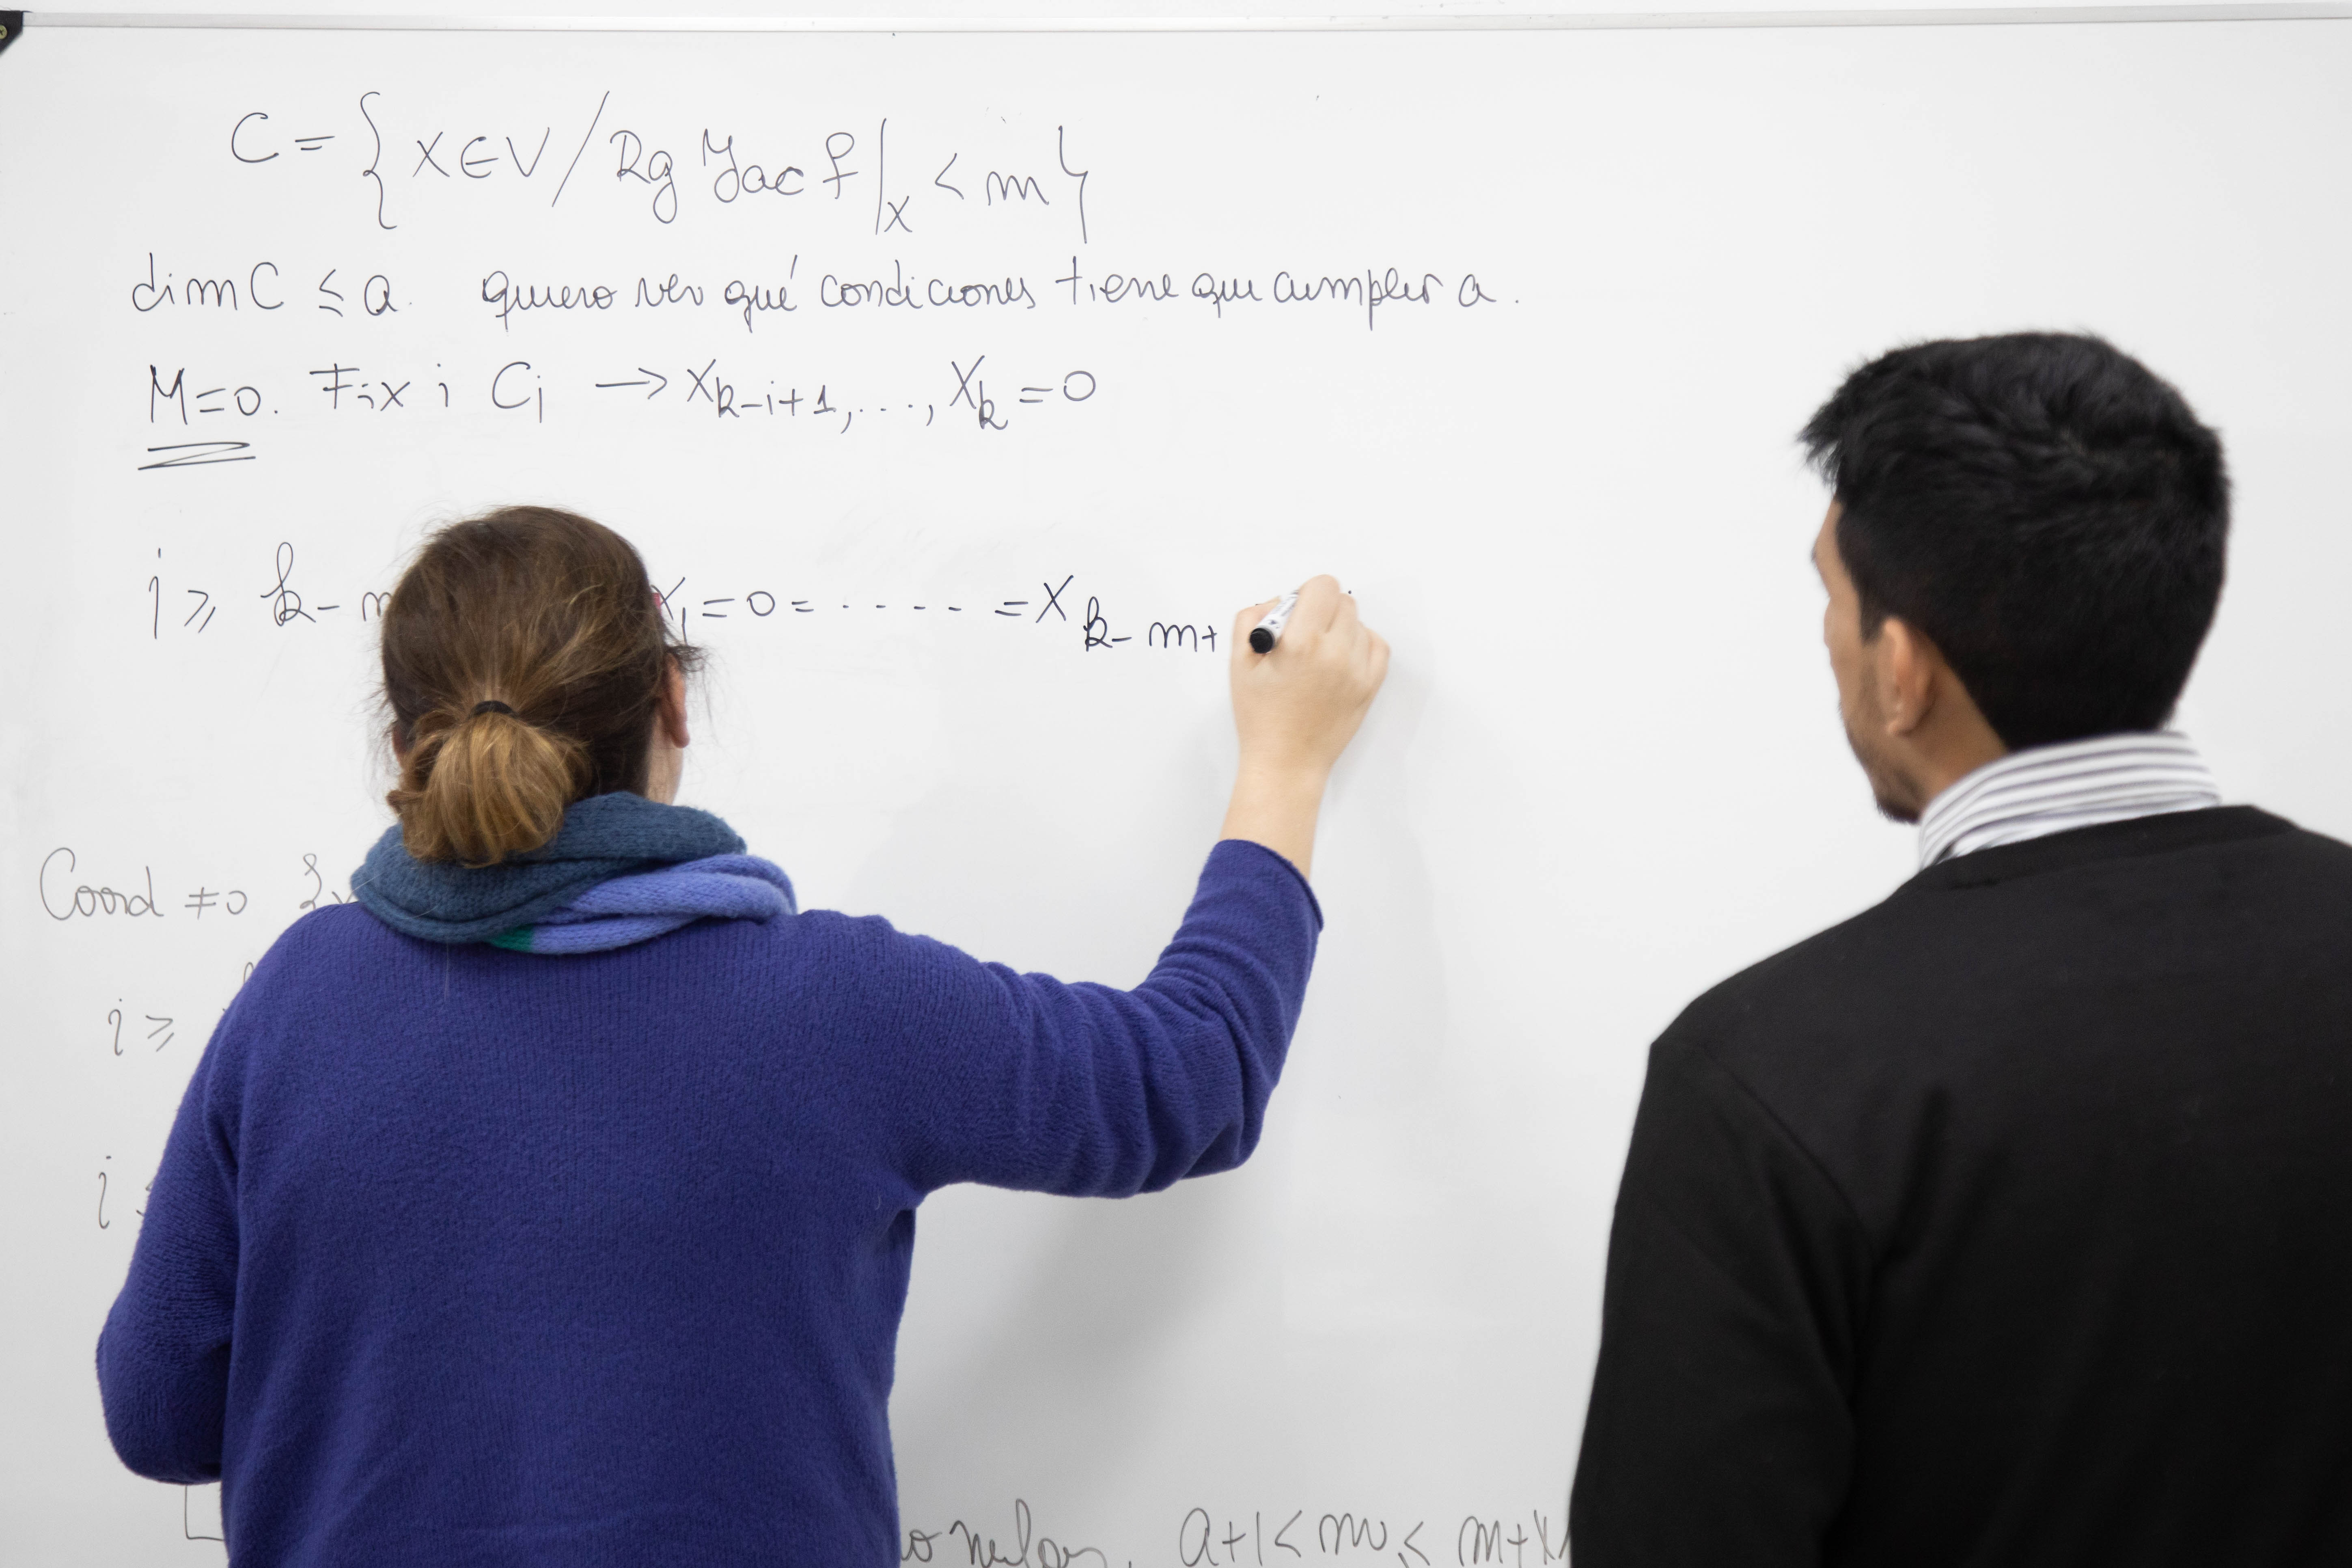 C = { x ∈ V / Rg Jac f |x < m }
dim C ≤ a. quiero ver qué condiciones tiene que cumplir a.
M=0. Fix i Ci → xk-i+1, ..., xk = 0
i ≥ k - m x1 = 0 = - - - - - = xk-m+
Coord ≠0 {
i ≥
i
a+1 <